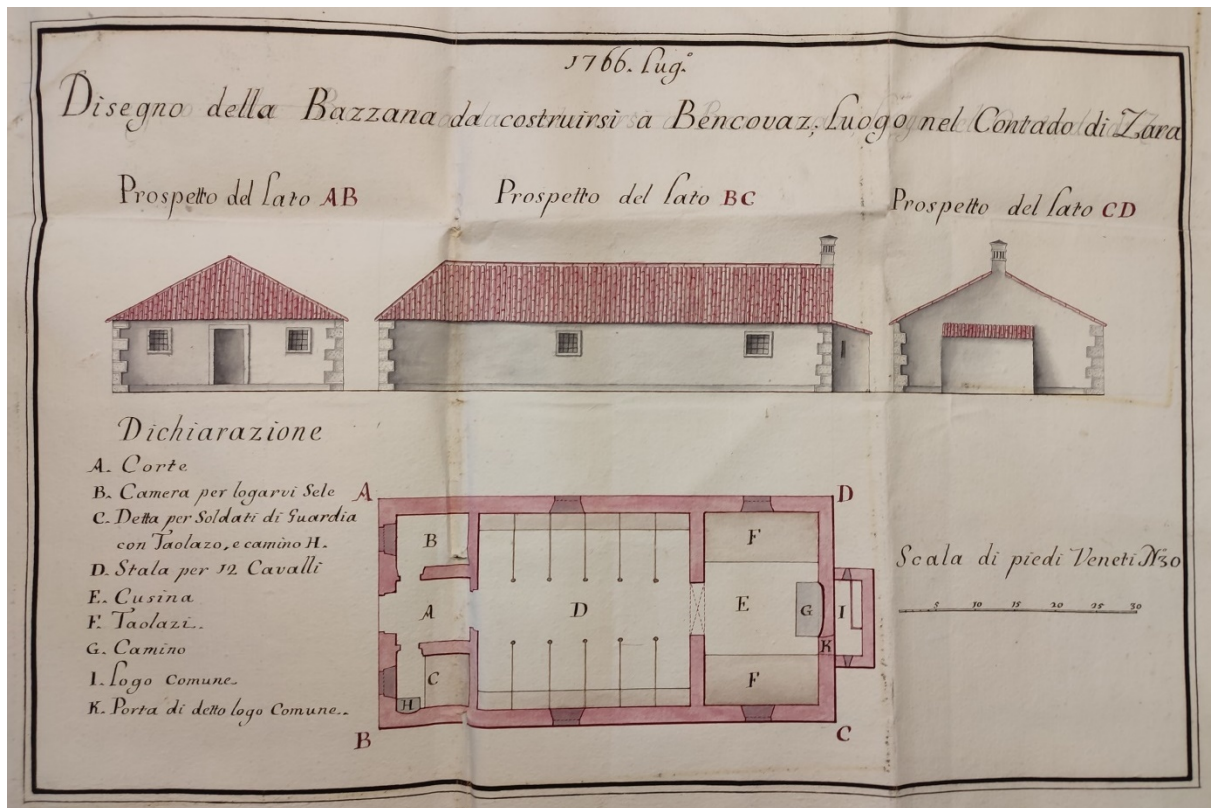 1766. Lug.º
Disegno della Bazzana da costruirsi a Bencovaz; Luogo nel Contado di Zara
Prospetto del Lato AB
Prospetto del Lato BC
Prospetto del Lato CD
Dichiarazione
A. Corte
B. Camera per logarvi Sele
C. Detta per Soldati di Guardia
con Taolazo, e camino H.
D. Stala per 12 Cavalli
E. Cusina
F. Taolazi.
G. Camino
I. Logo Comune.
K. Porta di detto logo Comune.
A
D
B
F
A
D
E
G
I
K
C
F
H
B
C
Scala di piedi Veneti N.30
5 10 15 20 25 30